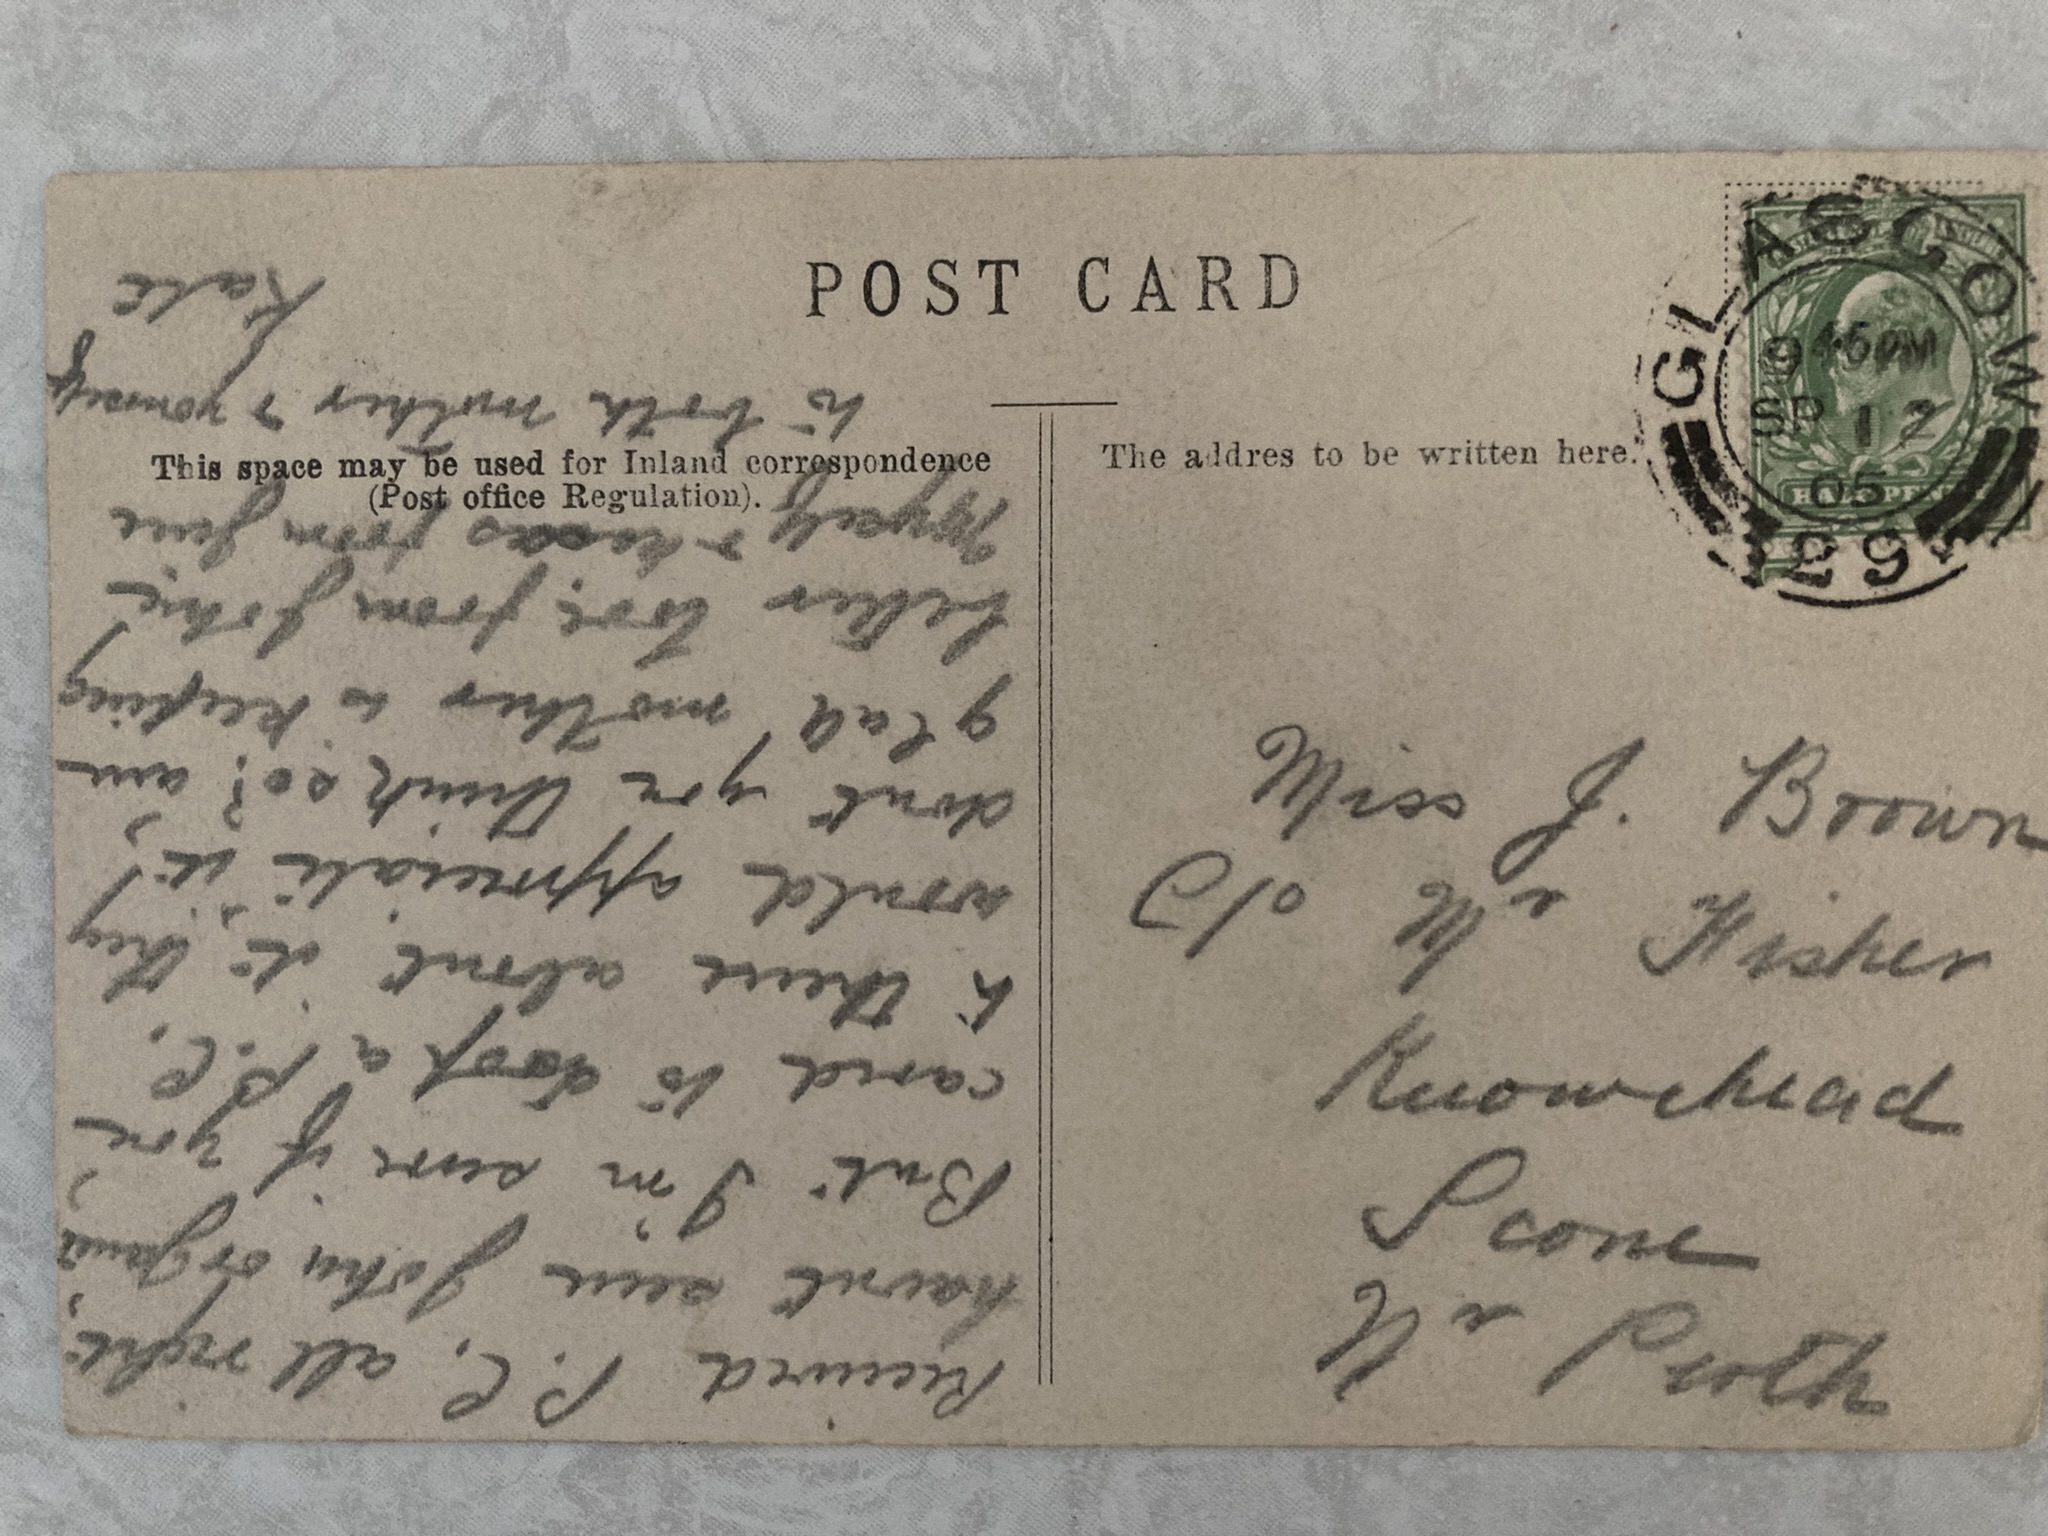 POST CARD
This space may be used for Inland correspondence
(Post office Regulation).
The addres to be written here.
GLASGOW
9 45 PM
SP 12
05
29
HALFPENNY
Miss J. Brown
C/o Mrs Fisher
Knowehead
Scone
Nr Perth
Received P.C. all right,
havnt seen John or Jamie,
But I'm sure if you
cared to drop a P.C.
to them about it, they
would appreciate it,
dont you think so? am
glad mother is keeping
better love from Johnie
Myself & kisses from Jim
to both mother & yourself
Kate